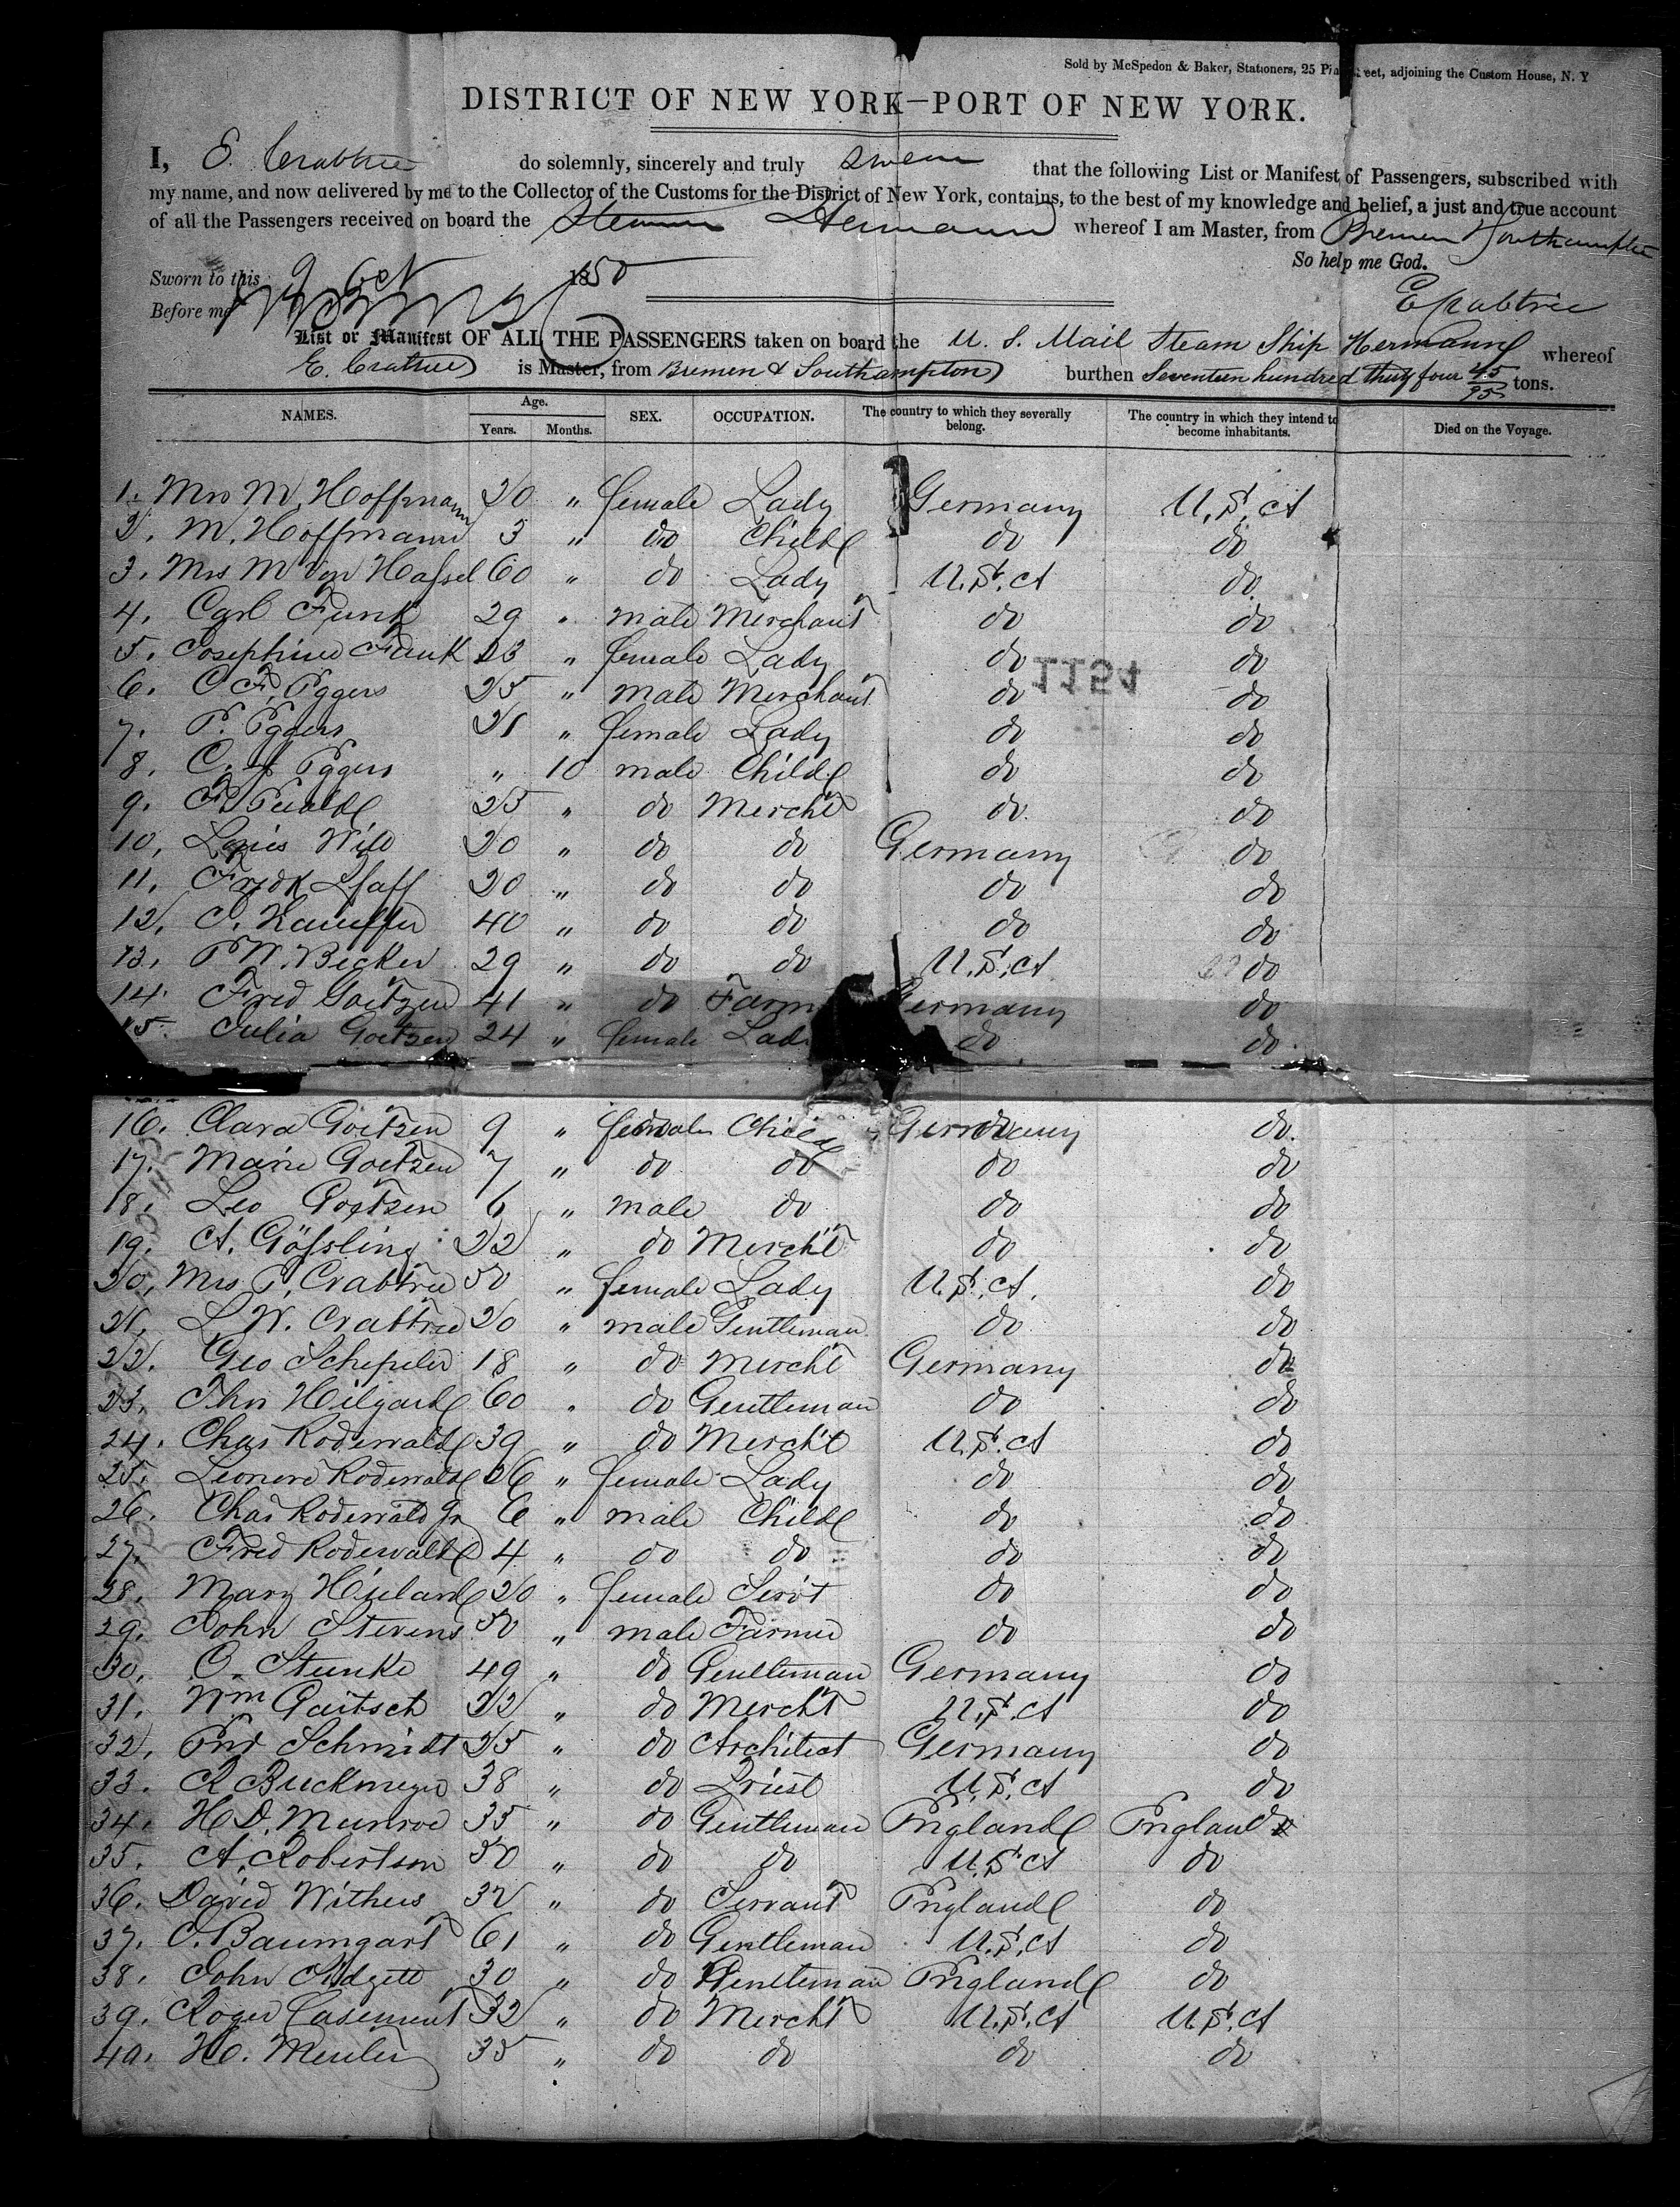 Sold by McSpedon & Baker, Stationers, 25 Pi eet, adjoining the Custom House, N. Y
DISTRICT OF NEW YORK—PORT OF NEW YORK.
I, E. Crabtree do solemnly, sincerely and truly swear that the following List or Manifest of Passengers, subscribed with
my name, and now delivered by me to the Collector of the Customs for the District of New York, contains, to the best of my knowledge and belief, a just and true account
of all the Passengers received on board the Steamer Hermann whereof I am Master, from Bremen Southampton
So help me God.
Sworn to this 9 Oct 1850
Before me
E Crabtree
List or Manifest OF ALL THE PASSENGERS taken on board the U. S. Mail Steam Ship Hermann whereof
E. Crabtree is Master, from Bremen & Southampton burthen Seventeen hundred thirty four 45/95 tons.
NAMES. Age. Years. Months. SEX. OCCUPATION. The country to which they severally belong. The country in which they intend to become inhabitants. Died on the Voyage.
1. Mrs M. Hoffmann 20 " female Lady Germany U.S.A
2. M. Hoffmann 3 " do Child do do
3. Mrs M von Hassel 60 " do Lady U.S.A do
4. Carl Funk 29 " male Merchant do do
5. Josephine Funk 23 " female Lady do do
1154
6. C F. Eggers 25 " male Merchant do do
7. E. Eggers 21 " female Lady do do
8. C. Eggers " 10 male Child do do
9. F. Ewald 25 " do Mercht do do
10. Louis Wild 20 " do do Germany do
11. Fredk Pfaff 20 " do do do do
12. C. 40 " do do do do
13. E W. Becker 29 " do do U.S.A do
14. Fred Goetzen 41 " do Farm Germany do
15. Julia Goetzen 24 " female Lad do do
16. Clara Goetzen 9 " female Child Germany do
17. Marie Goetzen 7 " do do do do
18. Leo Goetzen 6 " male do do do
19. A. Gössling 22 " do Mercht do do
20. Mrs E. Crabtree 50 " female Lady U.S.A. do
21. L W. Crabtree 20 " male Gentleman do do
22. Geo Schepeler 18 " do Mercht Germany do
23. Thr Hilgard 60 " do Gentleman do do
24. Chas Rodewald 39 " do Mercht U.S.A do
25. Leonore Rodewald 26 " female Lady do do
26. Chas Rodewald Jr 6 " male Child do do
27. Fred Rodewald 4 " do do do do
28. Mary 20 " female Servt do do
29. John Stevens 50 " male Farmer do do
30. O. Stunke 49 " do Gentleman Germany do
31. Wm Gaitsch 22 " do Mercht U.S.A do
32. Schmidt 25 " do Architect Germany do
33. R Buckmeyer 38 " do Priest U.S.A do
34. H D. Munroe 35 " do Gentleman England England
35. A. Robertson 50 " do do U.S.A do
36. David Withers 32 " do Servant England do
37. C. Baumgart 61 " do Gentleman U.S.A do
38. John Sidgett 30 " do Gentleman England do
39. Roger Casement 32 " do Mercht U.S.A U.S.A
40. H. Meuler 35 " do do do do